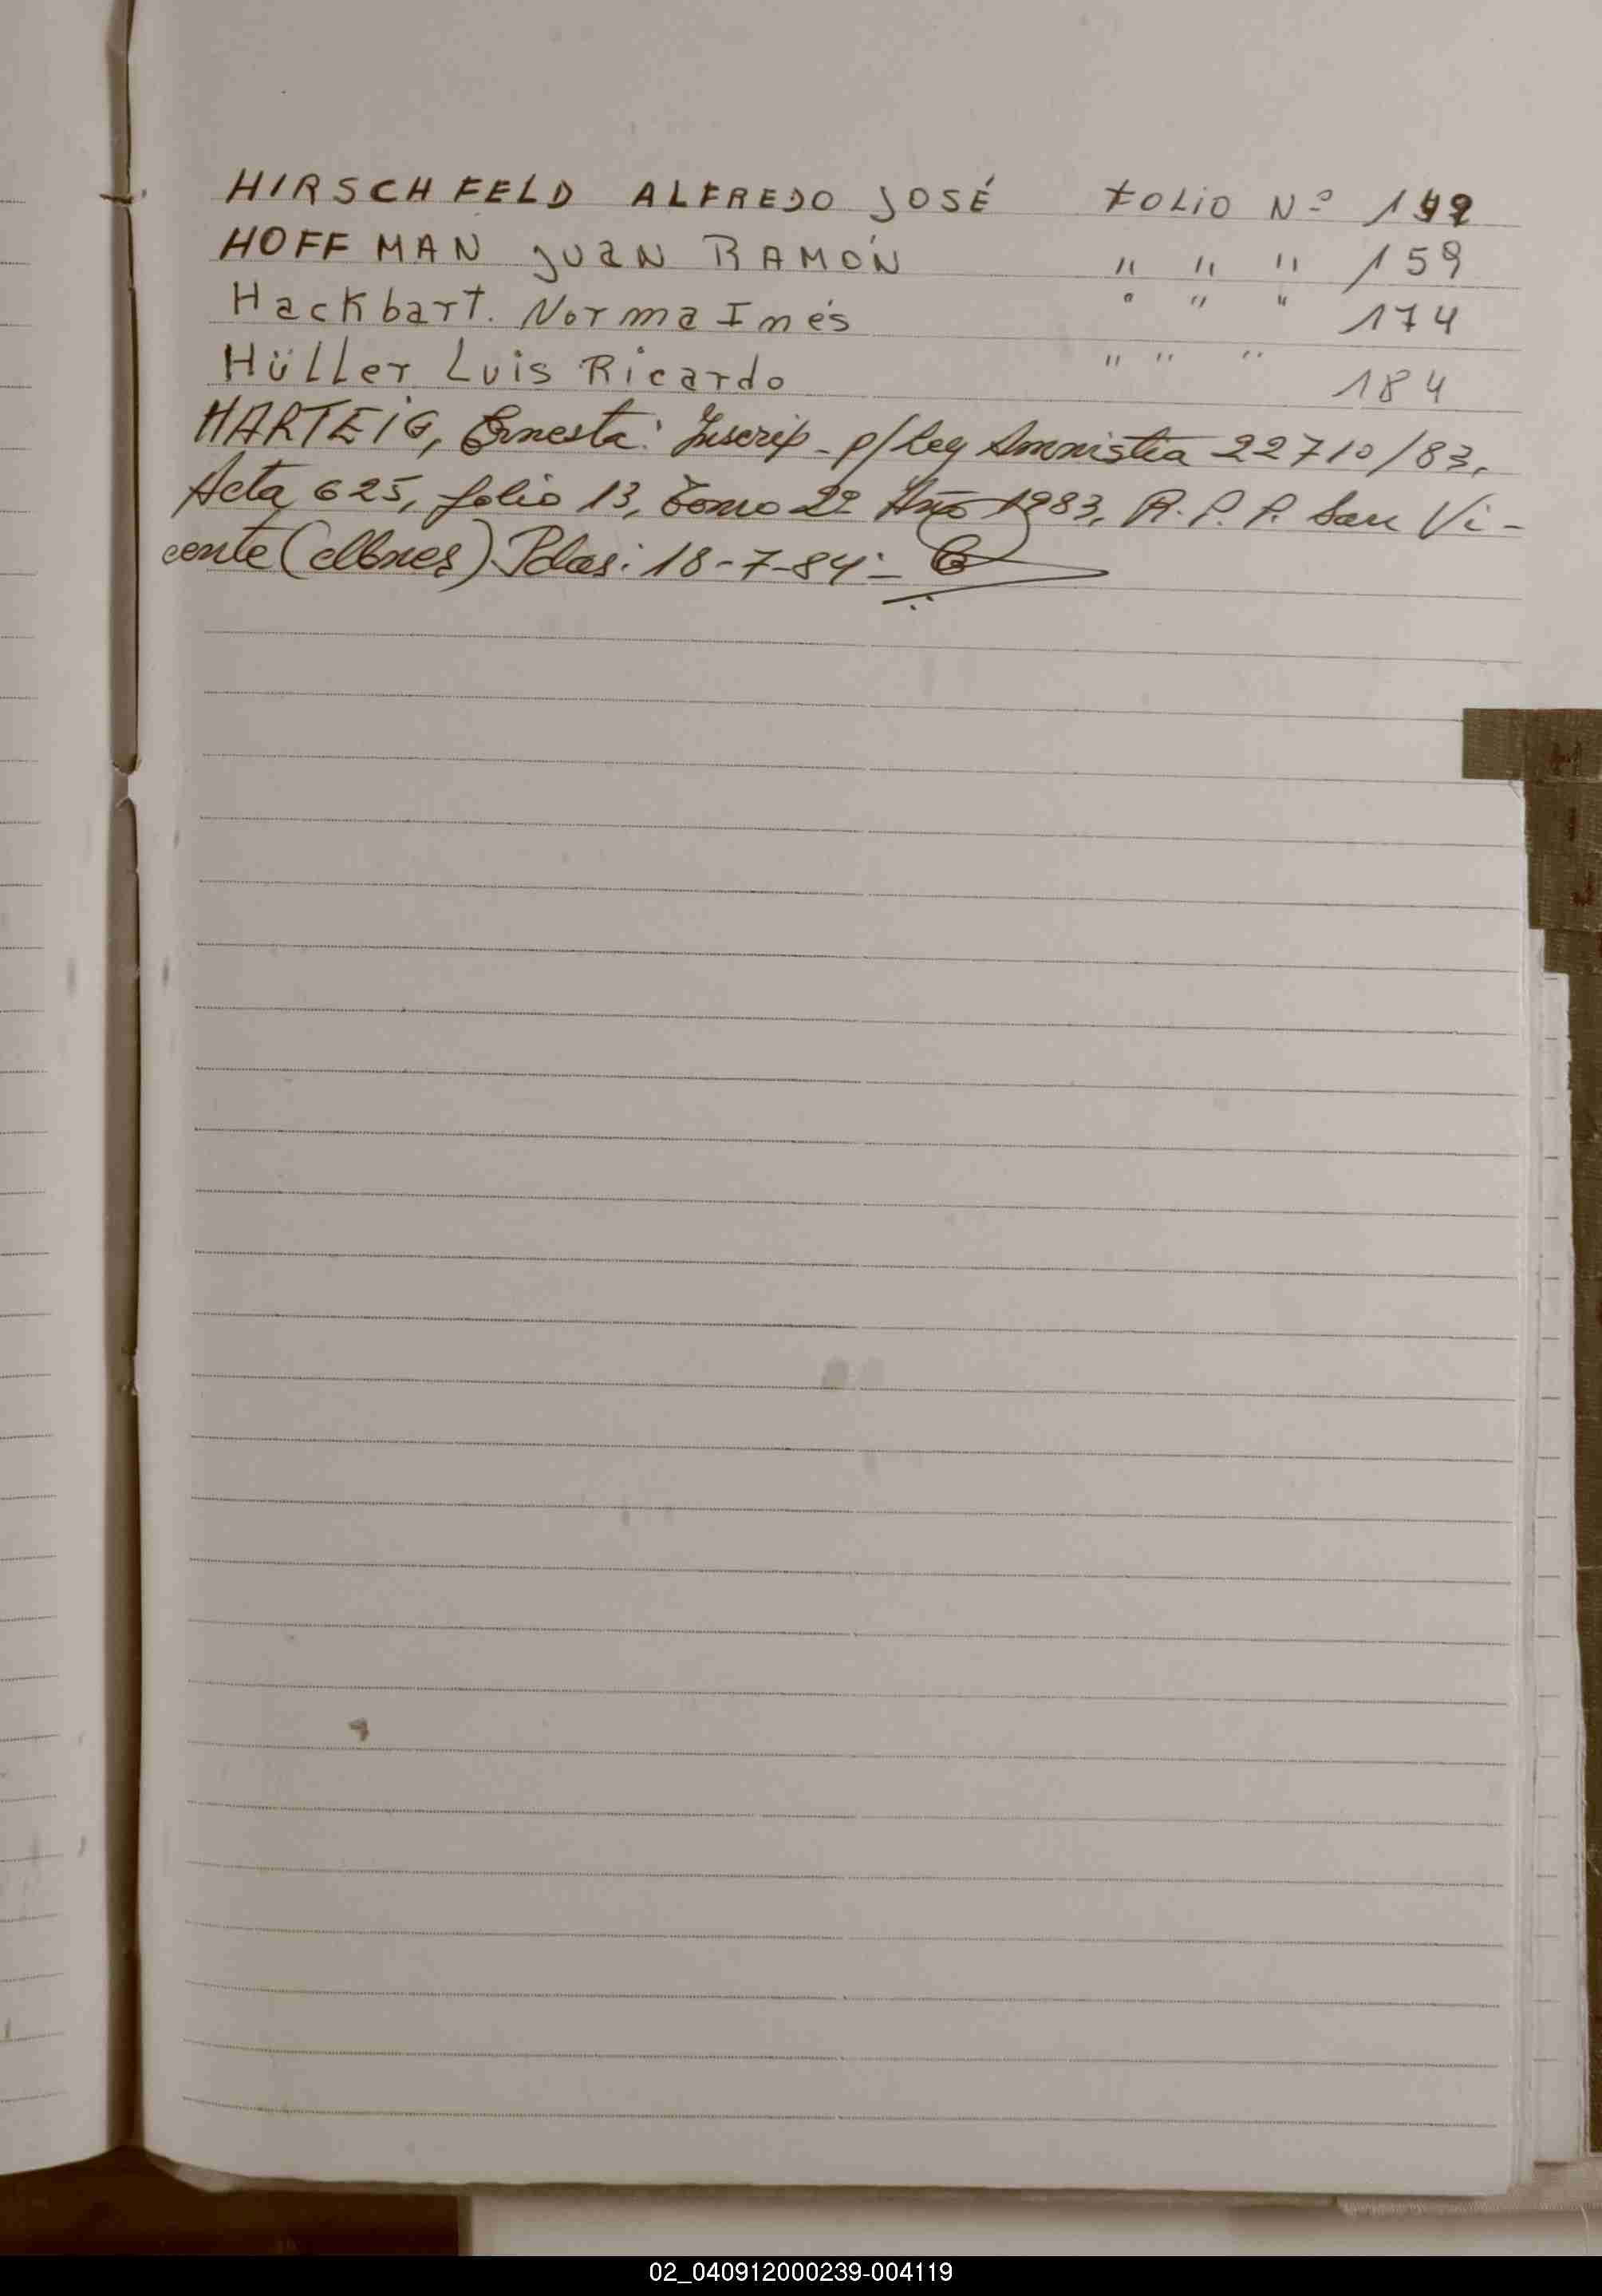 HIRSCHFELD ALFREDO JOSÉ FOLIO Nº
HOFFMAN JUAN RAMÓN " " " 159
Hackbart. Norma Inés " " " 174
Hüller Luis Ricardo " " " 184
HARTEIG, Ernesta: Inscrip- p/ Ley Amnistia 22710/83,
Acta 625, folio 13, Tomo 2º Año 1983, R.P.P. San Vi-
cente (Mnes) Pdas: 18-7-84.-
02_040912000239-004119